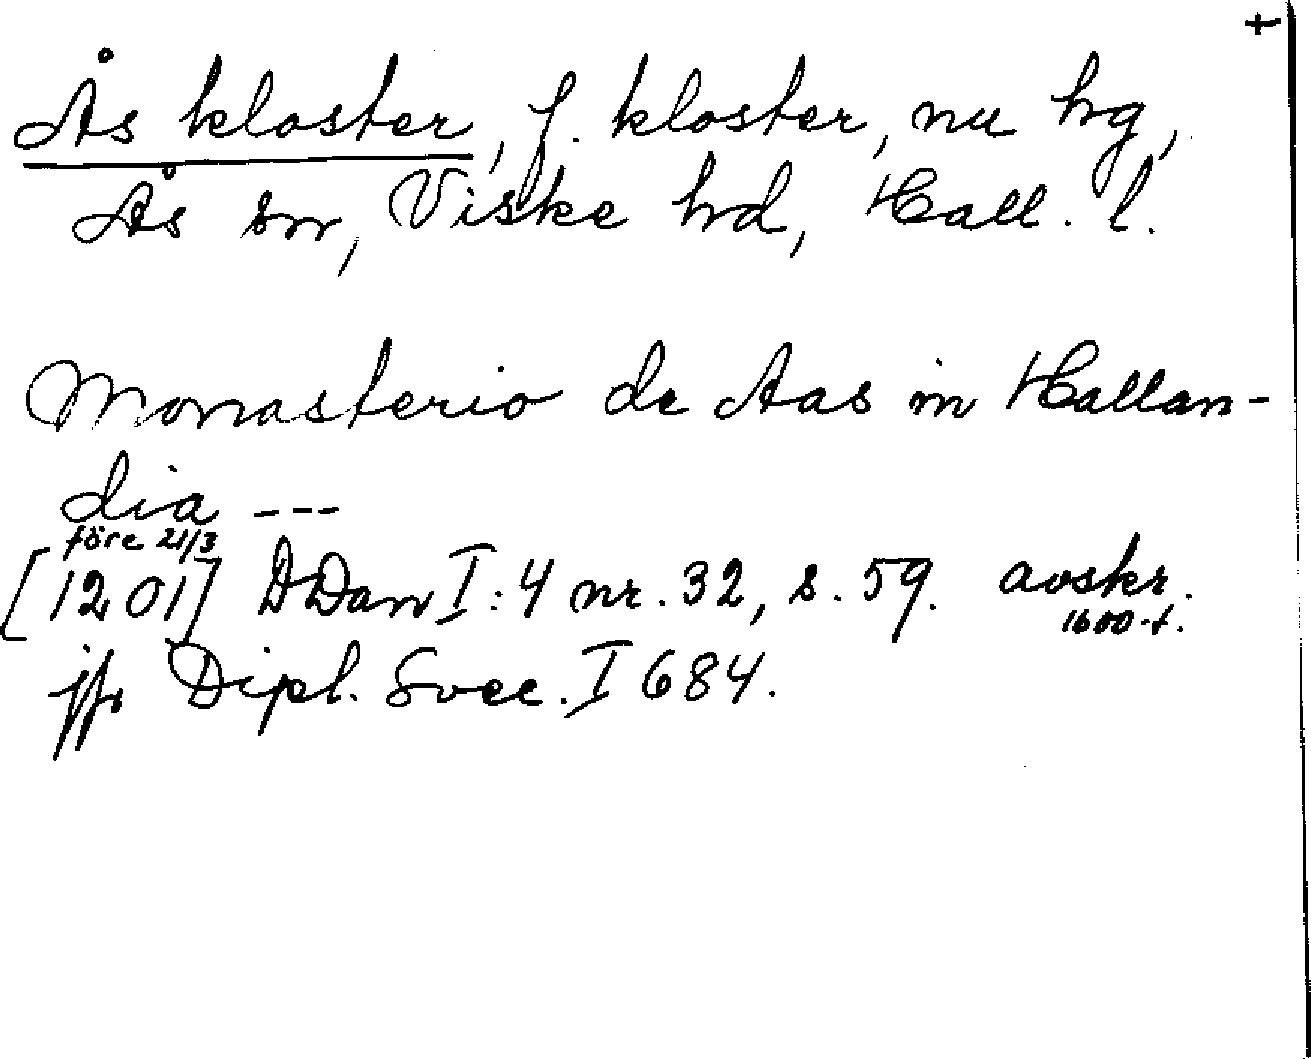 +
Ås kloster, f. kloster, nu hg,
Ås sn, Viske hd, Hall. l.
Monasterio de Aas in Hallan-
dia ---
före 21/3
[1201] DDan I:4 nr. 32, s. 59. avskr.
1600-t.
jfr Dipl. Svec. I 684.